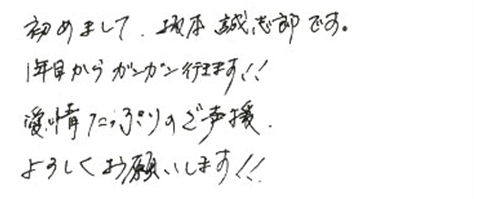 初めまして、坂本誠志郎です。
1年目からガンガン行きます!!
愛情たっぷりのご声援、
よろしくお願いします!!